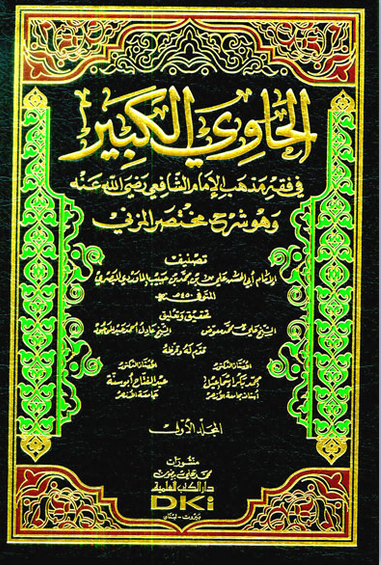 الحاوي الكبير
في فقه مذهب الإمام الشافعي رضي الله عنه
وهو شرح مختصر المزني
تصنيف
الإمام أبي الحسن علي بن محمد بن حبيب الماوردي البصري
المتوفى ٤٥٠ هـ
تحقيق وتعليق
الشيخ علي محمد معوض الشيخ عادل أحمد عبد الموجود
قدم له وقرظه
الأستاذ الدكتور الأستاذ الدكتور
محمد بكر إسماعيل عبد الفتاح أبو سنة
أستاذ بجامعة الأزهر جامعة الأزهر
المجلد الأول
منشورات
محمد علي بيضون
دار الكتب العلمية
DKi
بيروت - لبنان